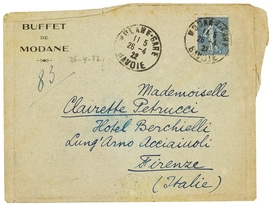 BUFFET
DE
MODANE
MODANE-GARE
11 5
26-4
22
SAVOIE
MODANE-GARE
26-4
22
SAVOIE
26-4-22
83
Mademoiselle
Clairette Petrucci
Hotel Berchielli
Lung'Arno Acciaiuoli
Firenze
(Italie)